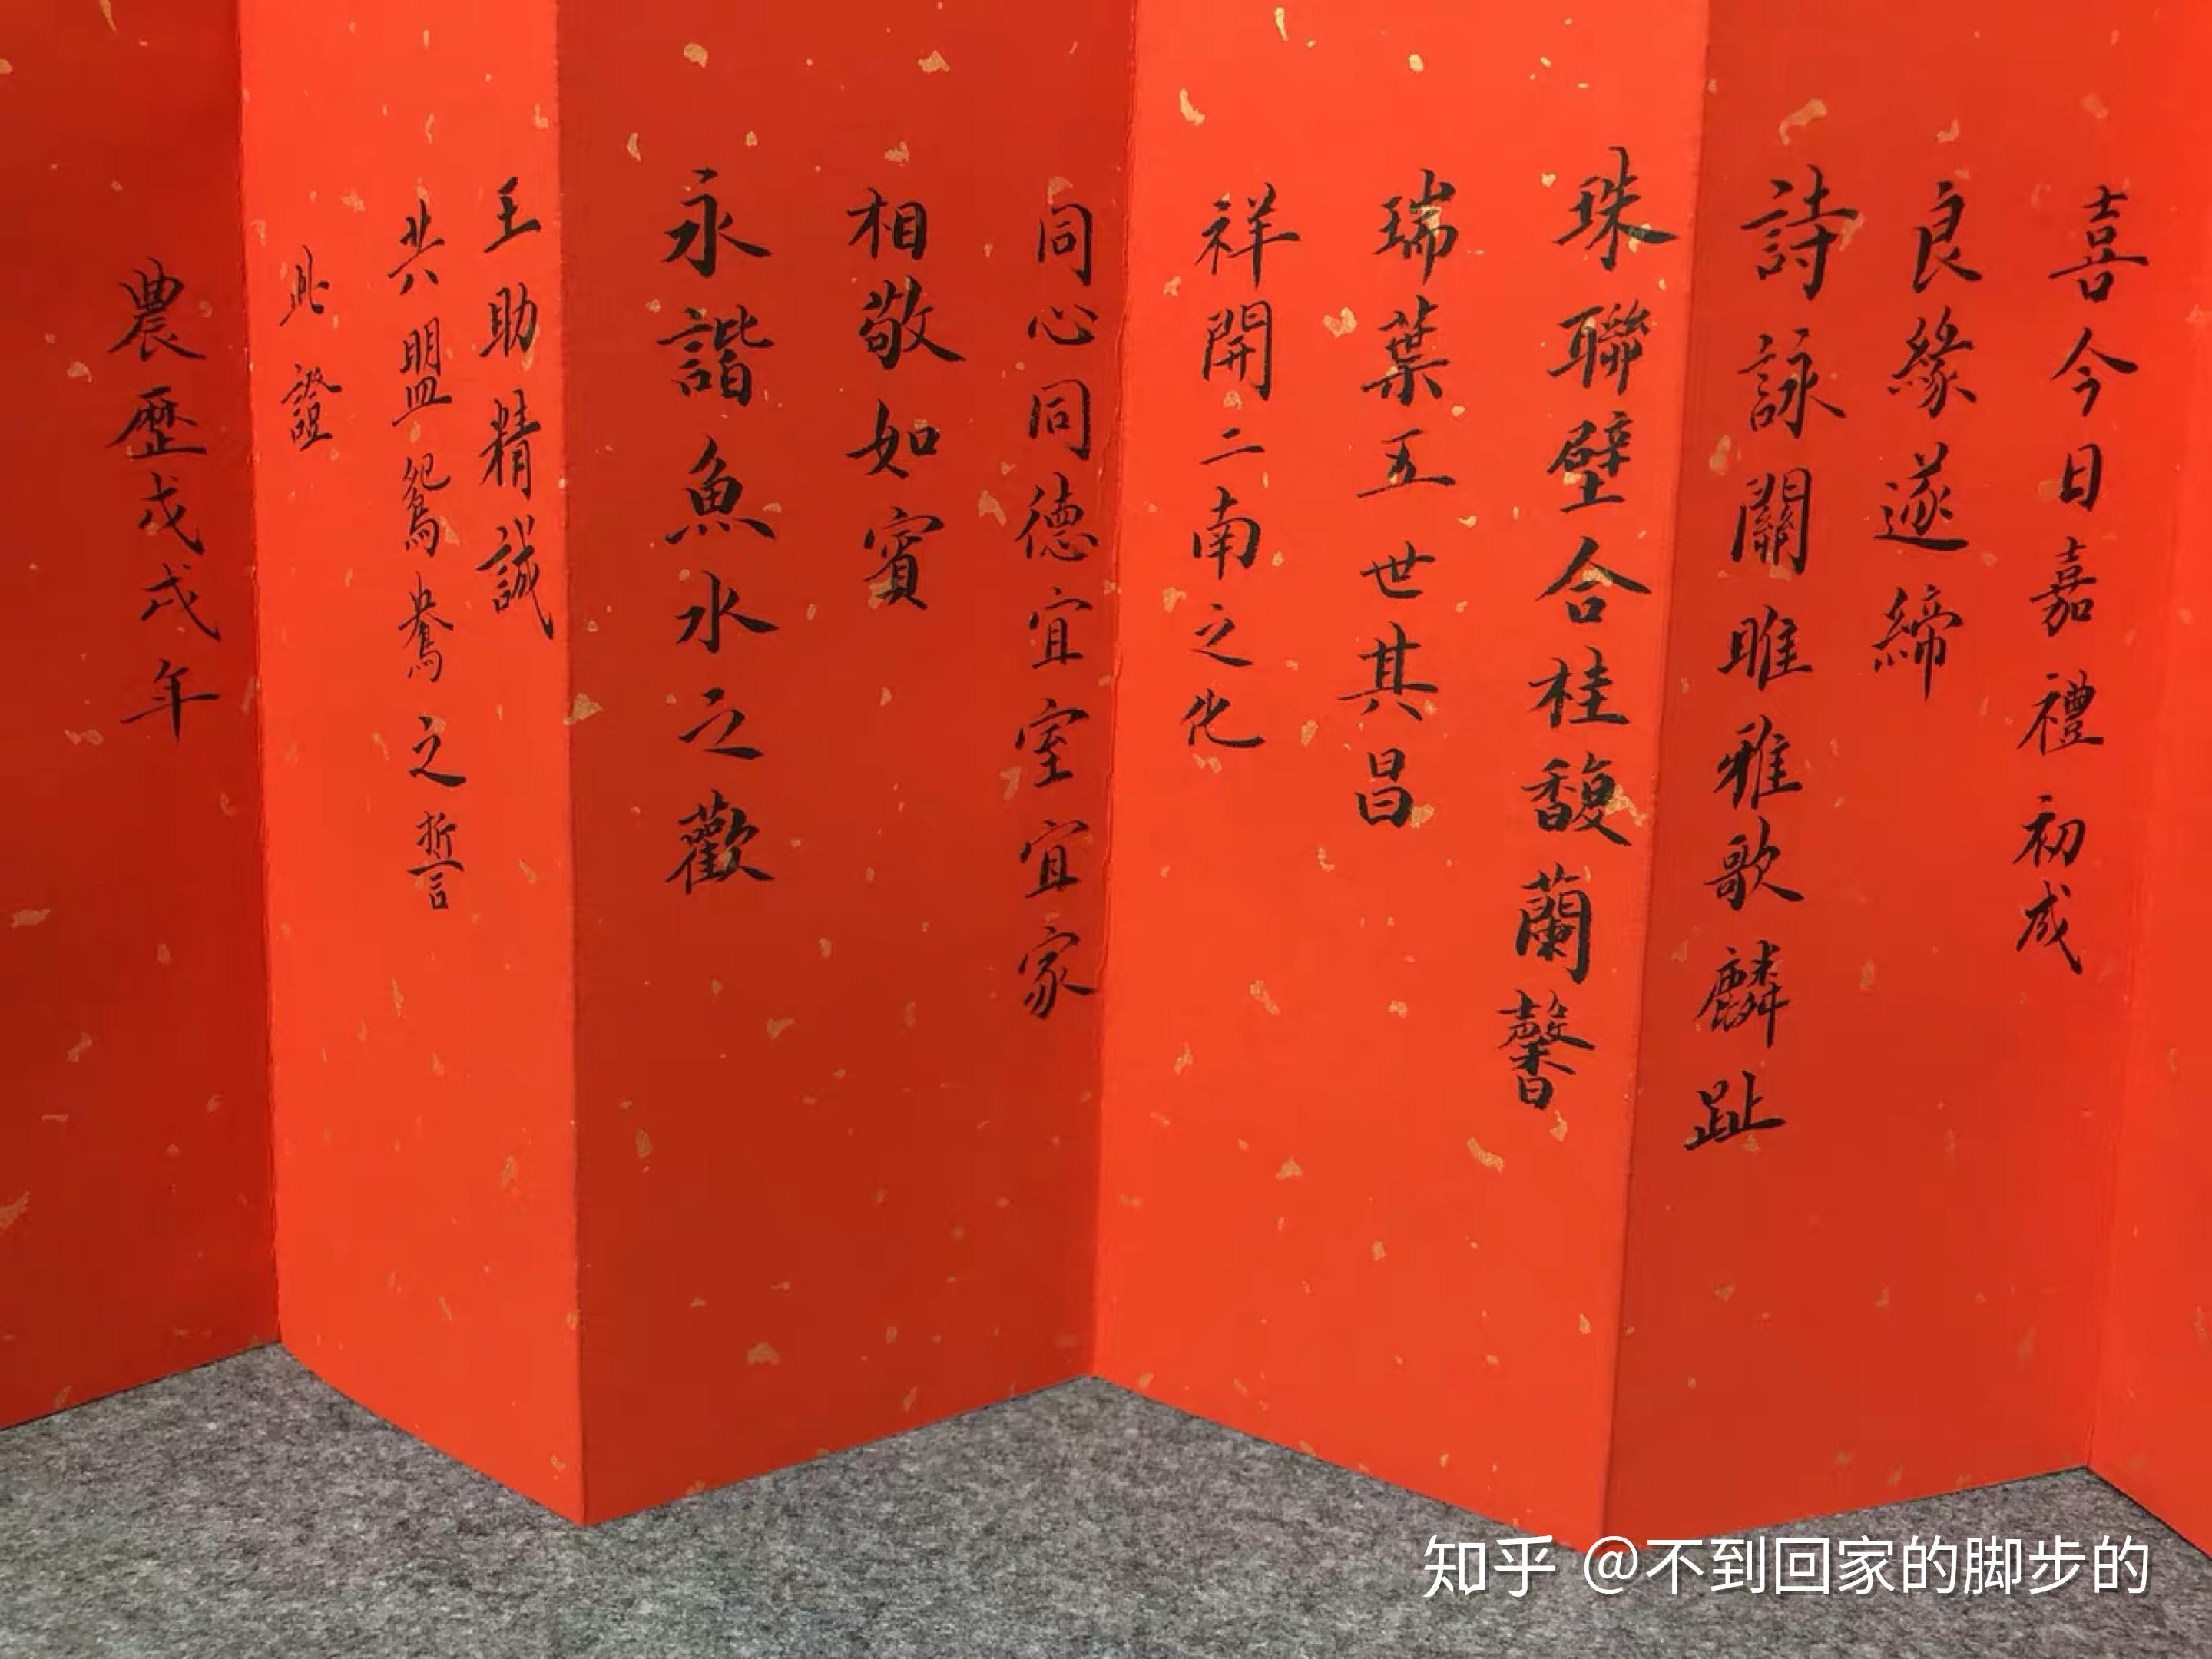 喜今日嘉禮初成
良緣遂締
詩詠關雎雅歌麟趾
珠聯壁合桂馥蘭馨
瑞葉五世其昌
祥開二南之化
同心同德宜室宜家
相敬如賓
永諧魚水之歡
王助精誠
共盟鴛鴦之誓
此證
農歷戊戌年
知乎 @不到回家的脚步的